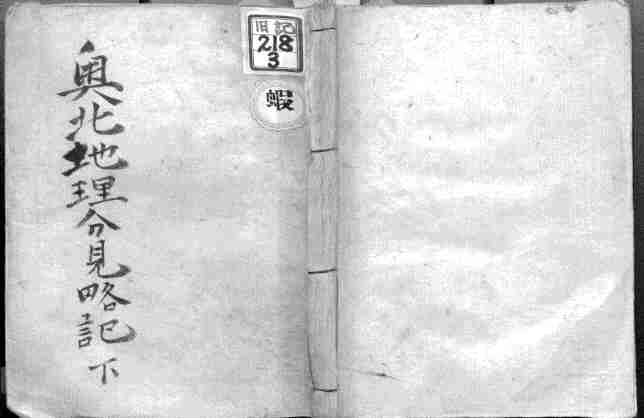 奥北地理分見略記 下
旧記
218
3
蝦